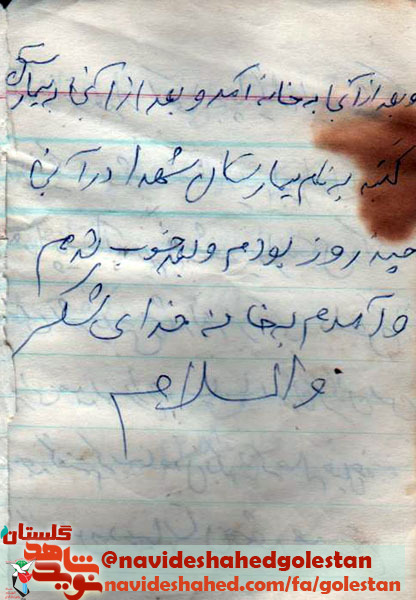 و بعد از آنجا به خانه آمد و بعد از آنجا بیمارستان
گنبد به نام بیمارستان شهدا در آنجا
چند روز بودم و بعد خوب شدم
و آمدم به خانه خدای شکر
والسلام
گلستان
نوید شاهد
@navideshahedgolestan
navideshahed.com/fa/golestan